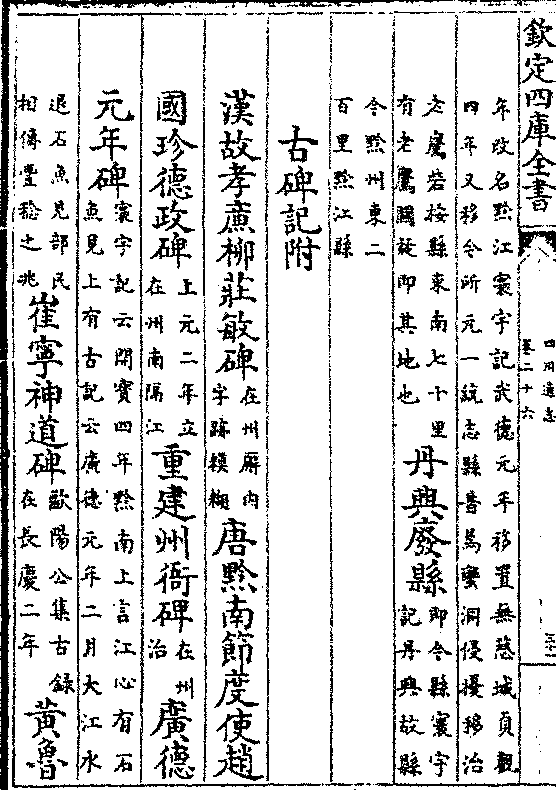 欽定四庫全書
四川通志
卷二十六
年改名黔江寰宇記武德元年移置無慈城貞觀
四年又移今所元一統志縣昔為蠻洞侵擾移治
老鷹砦按縣東南七十里
有老鷹關旋即其地也
丹興廢縣
即今縣寰宇
記丹興故縣
今黔州東二
百里黔江縣
古碑記附
漢故孝廉柳莊敏碑
在州廨内
字跡模糊
唐黔南節度使趙
國珍德政碑
上元二年立
在州南隔江
重建州衙碑
在州
治
廣德
元年碑
寰宇記云開寶四年黔南上言江心有石
魚見上有古記云廣德元年二月大江水
退石魚見部民
相傳豐稔之兆
崔寧神道碑
歐陽公集古錄
在長慶二年
黃魯